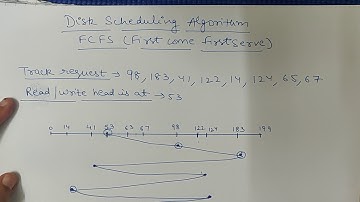 Disk Scheduling Algorithm
FCFS (First come First Serve)
Track request → 98, 183, 41, 122, 14, 124, 65, 67
Read/write head is at → 53
0 14 41 53 63 67 98 122 124 183 199